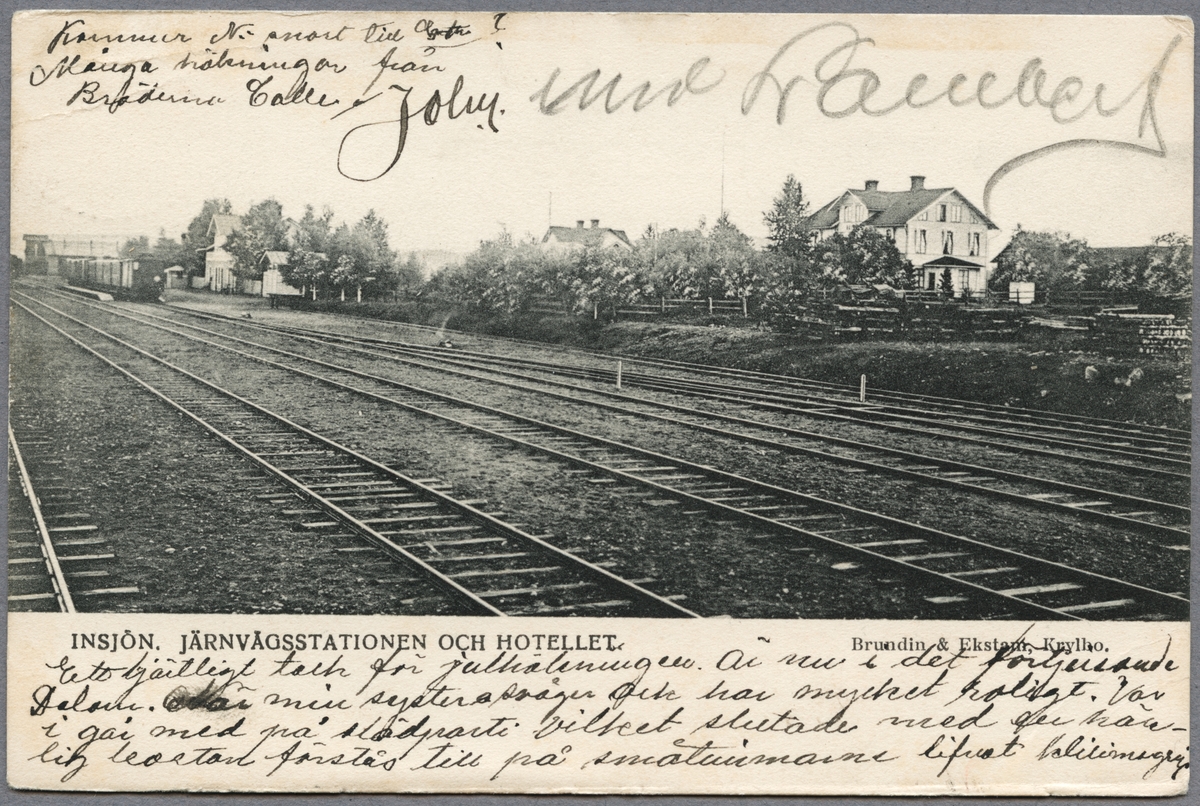 Kommer Ni snart till ?
Många hälsningar från
Bröderna Calle &
John.
INSJÖN. JÄRNVÄGSSTATIONEN OCH HOTELLET.
Brundin & Ekstam, Krylbo.
Ett hjärtligt tack för julhälsningen. Är nu i det förtjusande
Dalom. Här min syster o svåger och har mycket roligt. Var
i går med på slädparti vilket slutade med en här-
lig till på småtimmarne